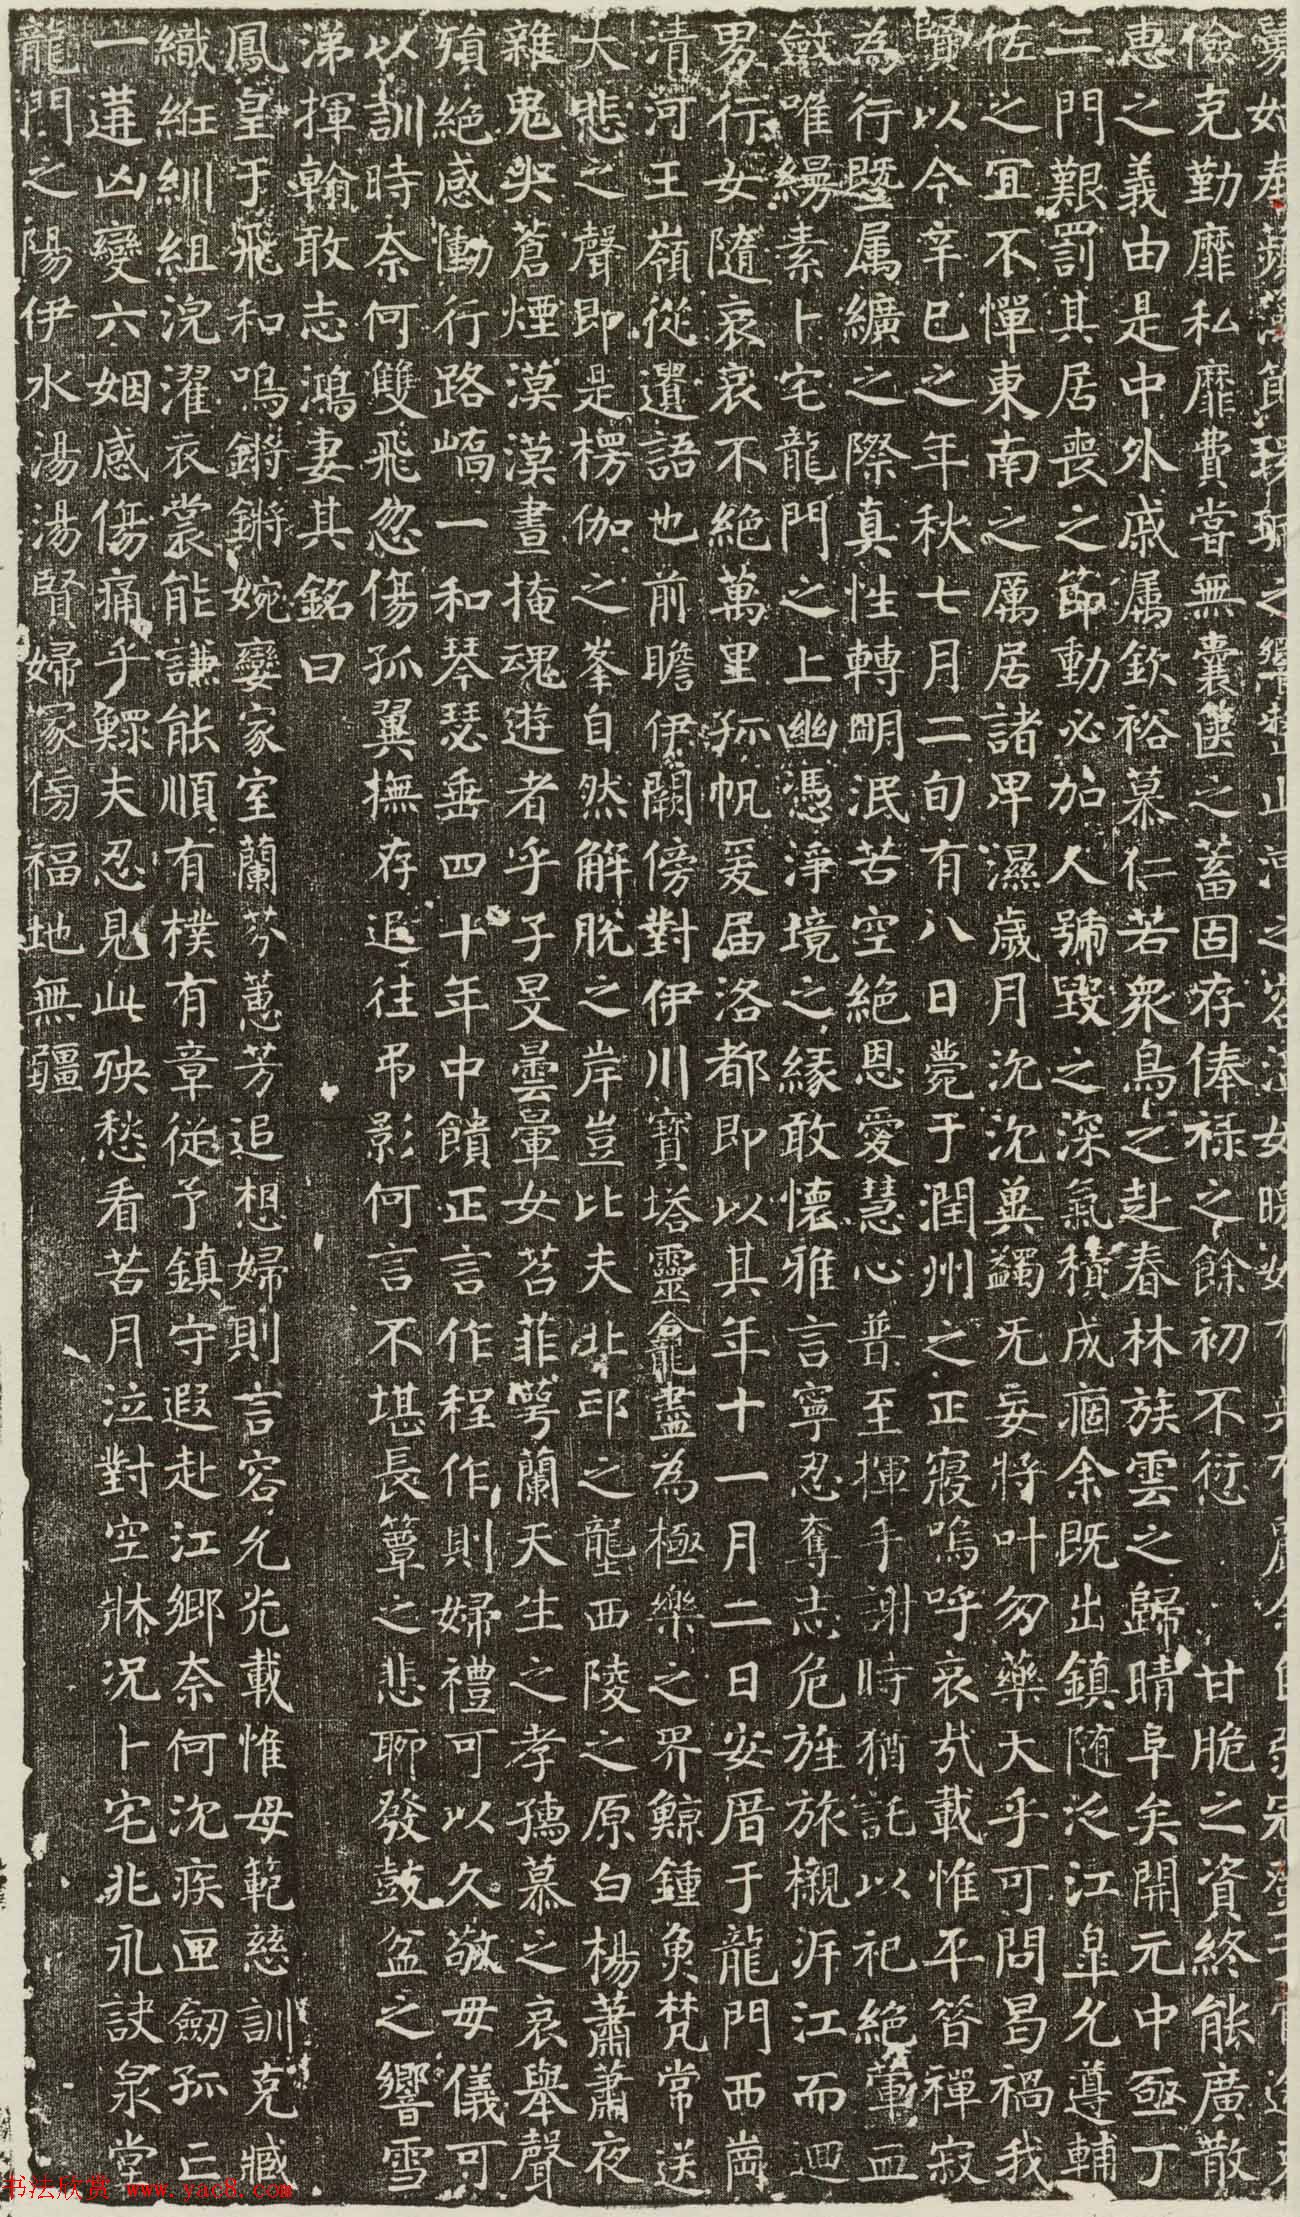 儉克勤靡私靡費嘗無囊篋之蓄固存俸祿之餘初不愆甘脆之資終能廣散
惠之義由是中外戚屬欽裕慕仁若衆鳥之赴春林族雲之歸晴阜矣開元中亟丁
二門艱罰其居喪之節動必加人號毀之深氣積成痼余既出鎮随泛江皐允遵輔
佐之冝不憚東南之厲居諸卑濕歲月沈沈冀蠲无妄將叶勿藥天乎可問曷禍我
賢以今辛巳之年秋七月二旬有八日薨于潤州之正寢嗚呼哀㢤載惟平昝禪寂
為行暨属纊之際真性轉明泯苦空絕恩愛慧心普至揮手謝時猶託以祀絕葷血
斂唯縵素卜宅龍門之上幽憑淨境之緣敢懷雅言寧忍奪志危旌旅櫬泝江而迴
男行女隨哀哀不絕萬里孤帆爰届洛都即以其年十一月二日安厝于龍門西崗
清河王嶺從遺語也前瞻伊闕傍對伊川寶塔靈龕盡為極樂之界鯨鍾魚梵常送
大悲之聲即是楞伽之峯自然解脫之岸豈比夫北邙之壟西陵之原白楊蕭蕭夜
雜鬼哭蒼煙漠漠晝掩魂遊者乎子旻曇暈女苕菲萼蘭天生之孝孺慕之哀舉聲
殞絕感慟行路嶠一和琴瑟垂四十年中饋正言作程作則婦禮可以久敬母儀可
以訓時奈何雙飛忽傷孤翼撫存追往弔影何言不堪長簟之悲聊發鼓盆之響雪
涕揮翰敢志鴻妻其銘曰
鳳皇于飛和鳴鏘鏘婉孌家室蘭芬蕙芳追想婦則言容允光載惟母範慈訓克臧
織絍紃組浣濯衣裳能謙能順有樸有章從予鎮守遐赴江鄉奈何沈疾匣劒孤亡
一遘凶變六姻感傷痛乎鰥夫忍見此殃愁看苦月泣對空牀况卜宅兆永訣泉堂
龍門之陽伊水湯湯賢婦冢傍福地無疆
书法欣赏 www.yac8.com